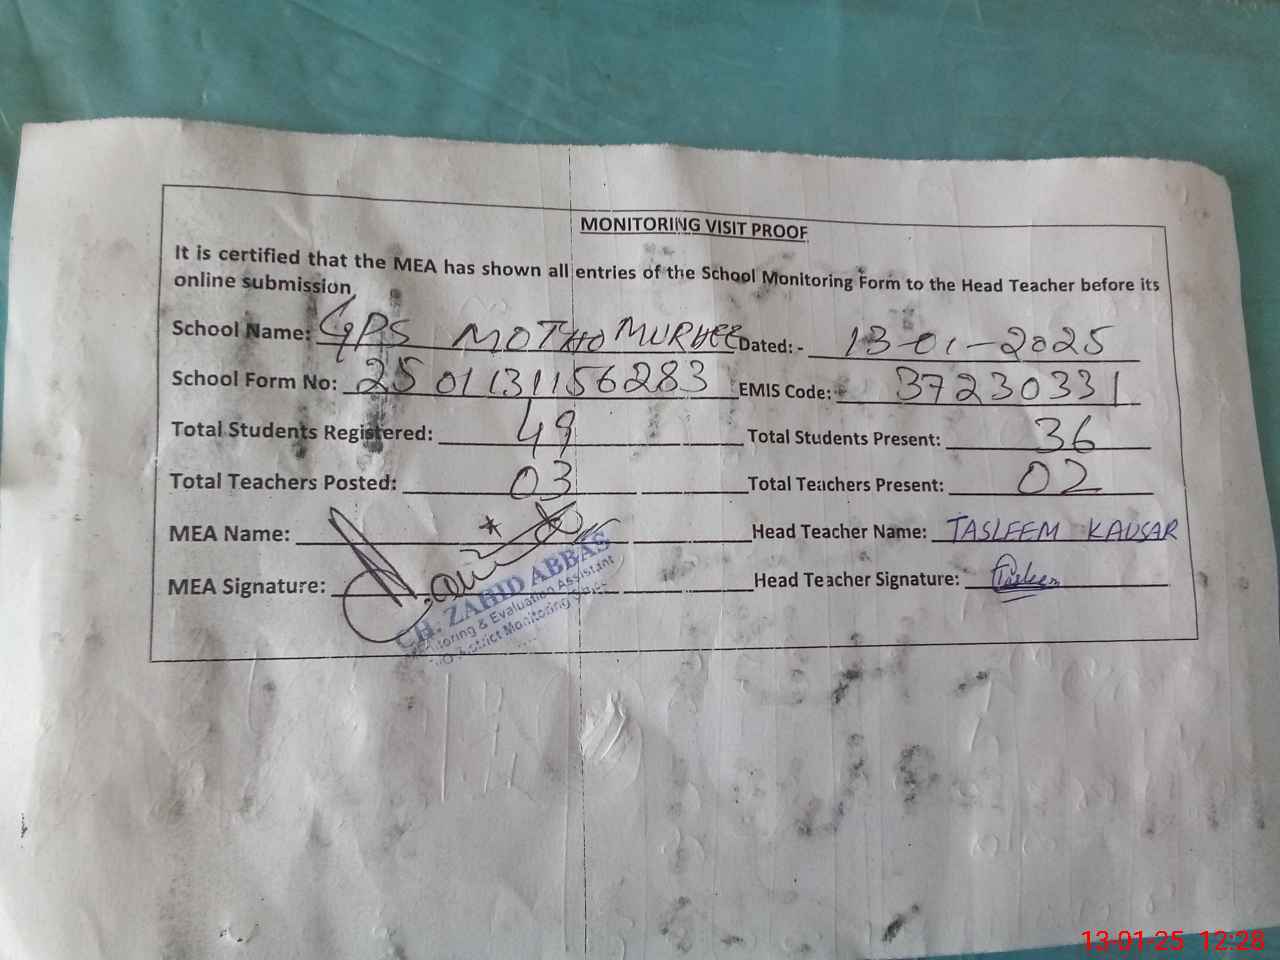 MONITORING VISIT PROOF
It is certified that the MEA has shown all entries of the School Monitoring Form to the Head Teacher before its
online submission
School Name: GPS MOTHO MURHEE Dated: - 13-01-2025
School Form No: 2501131156283 EMIS Code: 37230331
Total Students Registered: 49 Total Students Present: 36
Total Teachers Posted: 03 Total Teachers Present: 02
MEA Name: Head Teacher Name: TASLEEM KAUSAR
MEA Signature: Head Teacher Signature: Tasleem
CH. ZAHID ABBAS
Monitoring & Evaluation Assistant
District Monitoring
13-01-25 12:28